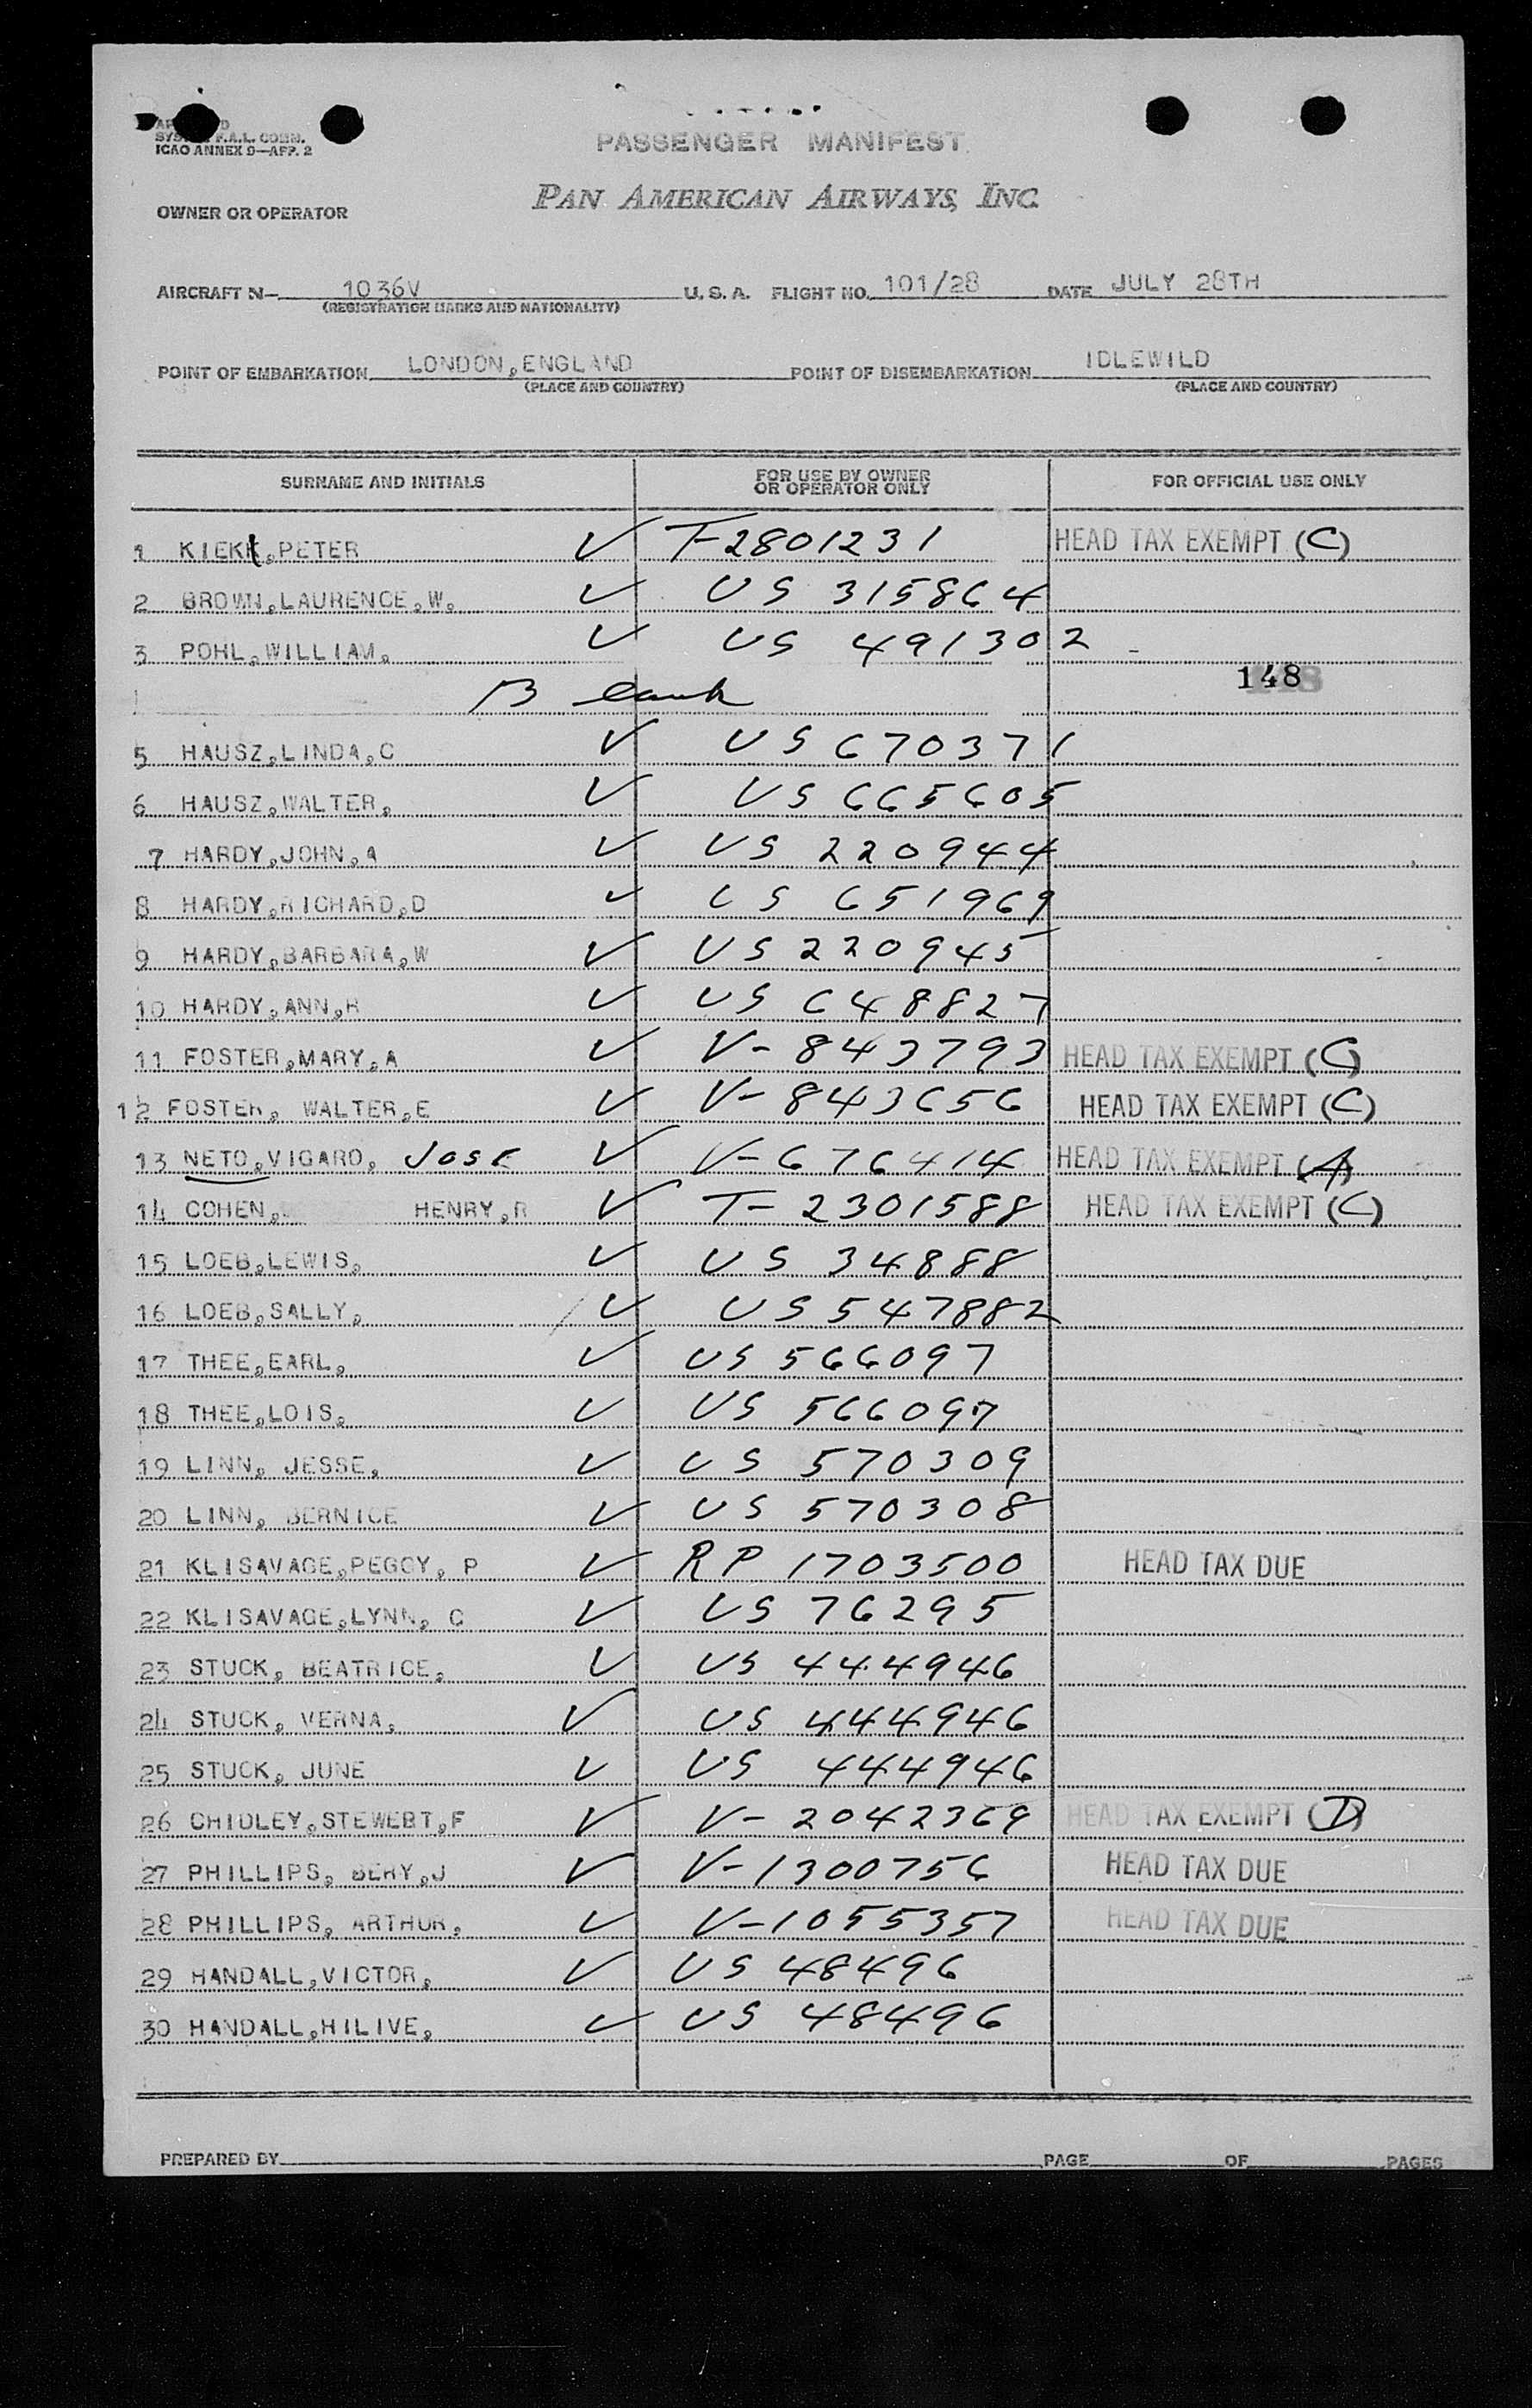 SYS F.A.L. COMN.
ICAO ANNEX 9—APP. 2
PASSENGER MANIFEST
PAN AMERICAN AIRWAYS, INC.
OWNER OR OPERATOR
AIRCRAFT N— 1036V U. S. A. FLIGHT NO. 101/28 DATE JULY 28TH
(REGISTRATION MARKS AND NATIONALITY)
POINT OF EMBARKATION LONDON, ENGLAND POINT OF DISEMBARKATION IDLEWILD
(PLACE AND COUNTRY) (PLACE AND COUNTRY)
SURNAME AND INITIALS FOR USE BY OWNER OR OPERATOR ONLY FOR OFFICIAL USE ONLY
1 KIEKt, PETER ✓ T-2801231 HEAD TAX EXEMPT (C)
2 BROWN, LAURENCE, W. ✓ US 315864
3 POHL, WILLIAM, ✓ US 491302
Blank 148
5 HAUSZ, LINDA, C ✓ US 670371
6 HAUSZ, WALTER, ✓ US 665605
7 HARDY, JOHN, A ✓ US 220944
8 HARDY, RICHARD, D ✓ US 651969
9 HARDY, BARBARA, W ✓ US 220945
10 HARDY, ANN, H ✓ US 648827
11 FOSTER, MARY, A ✓ V-843793 HEAD TAX EXEMPT (C)
12 FOSTER, WALTER, E ✓ V-843656 HEAD TAX EXEMPT (C)
13 NETO, VIGARO, JOSE ✓ V-676414 HEAD TAX EXEMPT (A)
14 COHEN, HENRY, R ✓ T-2301588 HEAD TAX EXEMPT (C)
15 LOEB, LEWIS, ✓ US 34888
16 LOEB, SALLY, ✓ US 547882
17 THEE, EARL, ✓ US 566097
18 THEE, LOIS, ✓ US 566097
19 LINN, JESSE, ✓ US 570309
20 LINN, BERNICE ✓ US 570308
21 KLISAVAGE, PEGGY, P ✓ RP 1703500 HEAD TAX DUE
22 KLISAVAGE, LYNN, C ✓ US 76295
23 STUCK, BEATRICE, ✓ US 444946
24 STUCK, VERNA, ✓ US 444946
25 STUCK, JUNE ✓ US 444946
26 CHIDLEY, STEWEBT, F ✓ V-2042369 HEAD TAX EXEMPT (D)
27 PHILLIPS, BERY, J ✓ V-1300756 HEAD TAX DUE
28 PHILLIPS, ARTHUR, ✓ V-1055357 HEAD TAX DUE
29 HANDALL, VICTOR, ✓ US 48496
30 HANDALL, HILIVE, ✓ US 48496
PREPARED BY PAGE OF PAGES